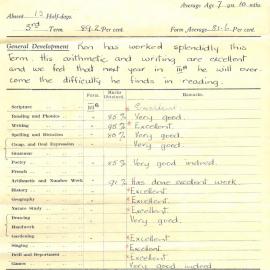 Average Age 7 yrs. 10 mths.
Absent 13 Half-days.
3rd Term 89.2 Per cent. Form Average 81.6 Per cent.
General Development Ken has worked splendidly this
Term. His arithmetic and writing are excellent
and we feel that next year in he will over
come the difficulty he finds in reading.
Form Marks Obtained Remarks.
Scripture Excellent
Reading and Phonics 85% Very good.
Writing 95% Excellent.
Spelling and Dictation 80% Very good.
Comp. and Oral Expression Very good.
Grammar
Poetry 85% Very good indeed.
French
Arithmetic and Number Work 91% Has done excellent work
History Excellent.
Geography Excellent.
Nature Study Excellent.
Drawing Very good.
Handwork
Gardening Excellent
Singing Excellent.
Drill and Deportment Excellent.
Games Very good indeed